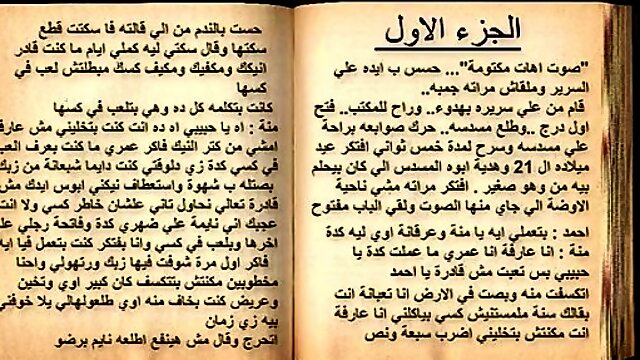 الجزء الاول
"صوت اهات مكتومة"... حسس ب ايده علي
السرير وملقاش مراته جمبه..
قام من علي سريره بهدوء.. وراح للمكتب.. فتح
اول درج ..وطلع مسدسه.. حرك صوابعه براحة
علي مسدسه وسرح لمدة خمس ثواني افتكر عيد
ميلاده ال 21 وهدية ابوه المسدس الي كان بيحلم
بيه من وهو صغير . افتكر مراته مشي ناحية
الاوضة الي جاي منها الصوت ولقي الباب مفتوح
احمد : بتعملي ايه يا منة وعرقانة اوي ليه كدة
منة : انا عارفة انا عمري ما عملت كدة يا
حبيبي بس تعبت مش قادرة يا احمد
اتكسفت منه وبصت في الارض انا تعبانة انت
بقالك سنة ملمستنيش كسي بياكلني انا عارفة
انت مكنتش بتخليني اضرب سبعة ونص
حست بالندم من الي قالته فا سكتت قطع
سكتها وقال سكتي ليه كملي ايام ما كنت قادر
انيكك ومكفيك ومكيف كسك مبطلتش لعب في
كسها
كانت بتكلمه كل ده وهي بتلعب في كسها
منة : اه يا حبيبي اه ده انت كنت بتخليني مش عارفة
امشي من كتر النيك فاكر عمري ما كنت بعرف العب
في كسي كدة زي دلوقتي كنت دايما شبعانة من زبك
بصتله ب شهوة واستعطاف نيكني ابوس ايدك مش
قادرة تعالي نحاول تاني علشان خاطر كسي ولا انت
عجبك اني نايمة علي ضهري كدة وفاتحة رجلي علي
اخرها وبلعب في كسي وانا بفتكر كنت بتعمل فيا ايه
فاكر اول مرة شوفت فيها زبك ورتهولي واحنا
مخطوبين مكنتش بتتكسف كان كبير اوي وتخين
وعريض كنت بخاف منه اوي طلعولهالي يلا خوفني
بيه زي زمان
اتحرج وقال مش هينفع اطلعه نايم برضو